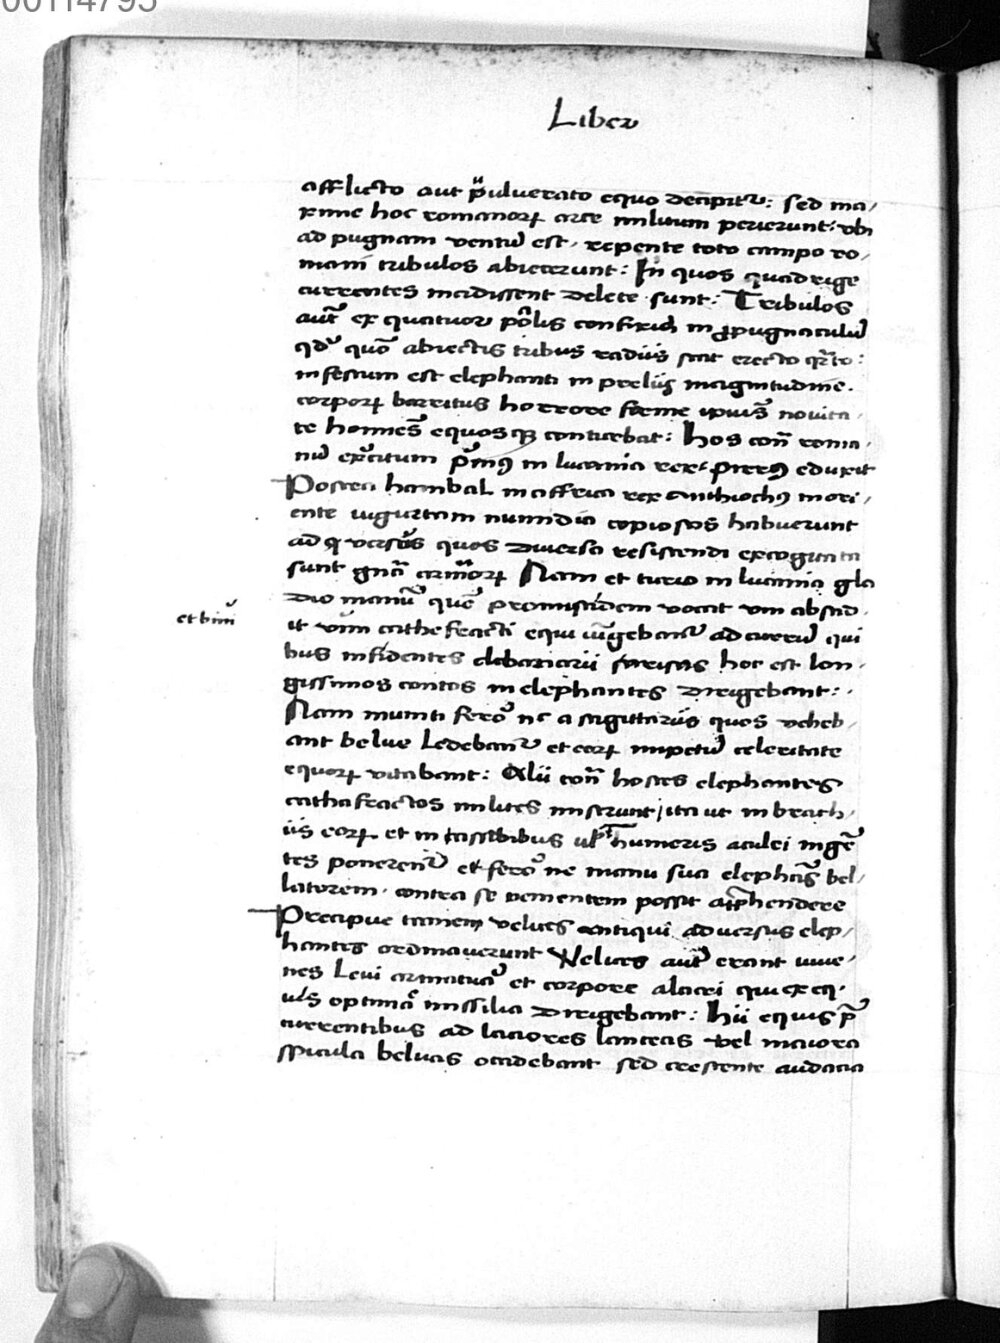 00114795
Liber
afflicto aut pulverato equo decipitur: sed ma/
xime hoc romanorum arte militum perierunt: ubi
ad pugnam ventum est, repente toto campo ro/
mani tribulos abiecerunt: In quos quadrige
currentes incidissent delete sunt: Tribulos
aut ex quatuor palis confixum in propugnaculum
quod quomodo abiectis tribus radiis stat erecto quarto:
infestum est elephanti in preliis magnitudine.
corporum barritus horrore forme ipsius novita/
te homines equosque conturbat: Hos contra roma/
num exercitum primus in lucania rex pirrus eduxit
Postea hanibal in affrica rex anthiochus in ori/
ente iugurtam numidia copiosos habuerunt
adversus quos diversa resistendi excogitata
sunt genera armorum Nam et turio in lucania gla
dio manum quem promuscidem vocat uni abscid/
it
et bini
bini cathefracti equi iungebantur ad currum qui
bus insidentes clebanarii sarisas hoc est lon/
gissimos contos in elephantes dirigebant:
Nam muniti ferro nec a sagittariis quos veheb/
ant belue ledebantur et eorum impetum celeritate
equorum vitabant: Alii contra hostes elephantes
cathafractos milites miserunt, ita ut in brach/
iis eorum et in cassibibus vel humeris aculei ingen
tes ponerentur et ferro ne manu sua elephans bel/
latorem, contra se venientem possit apprehendere
Precipue tamen velites antiqui adversus elep/
hantes ordinaverunt Velites autem erant iuve/
nes Levi armatura et corpore alacri qui ex eq/
uis optima missilia dirigebant: Hii equis pre
currentibus ad laciores lanceas vel maiora
spicula beluas occidebant sed crescente audacia